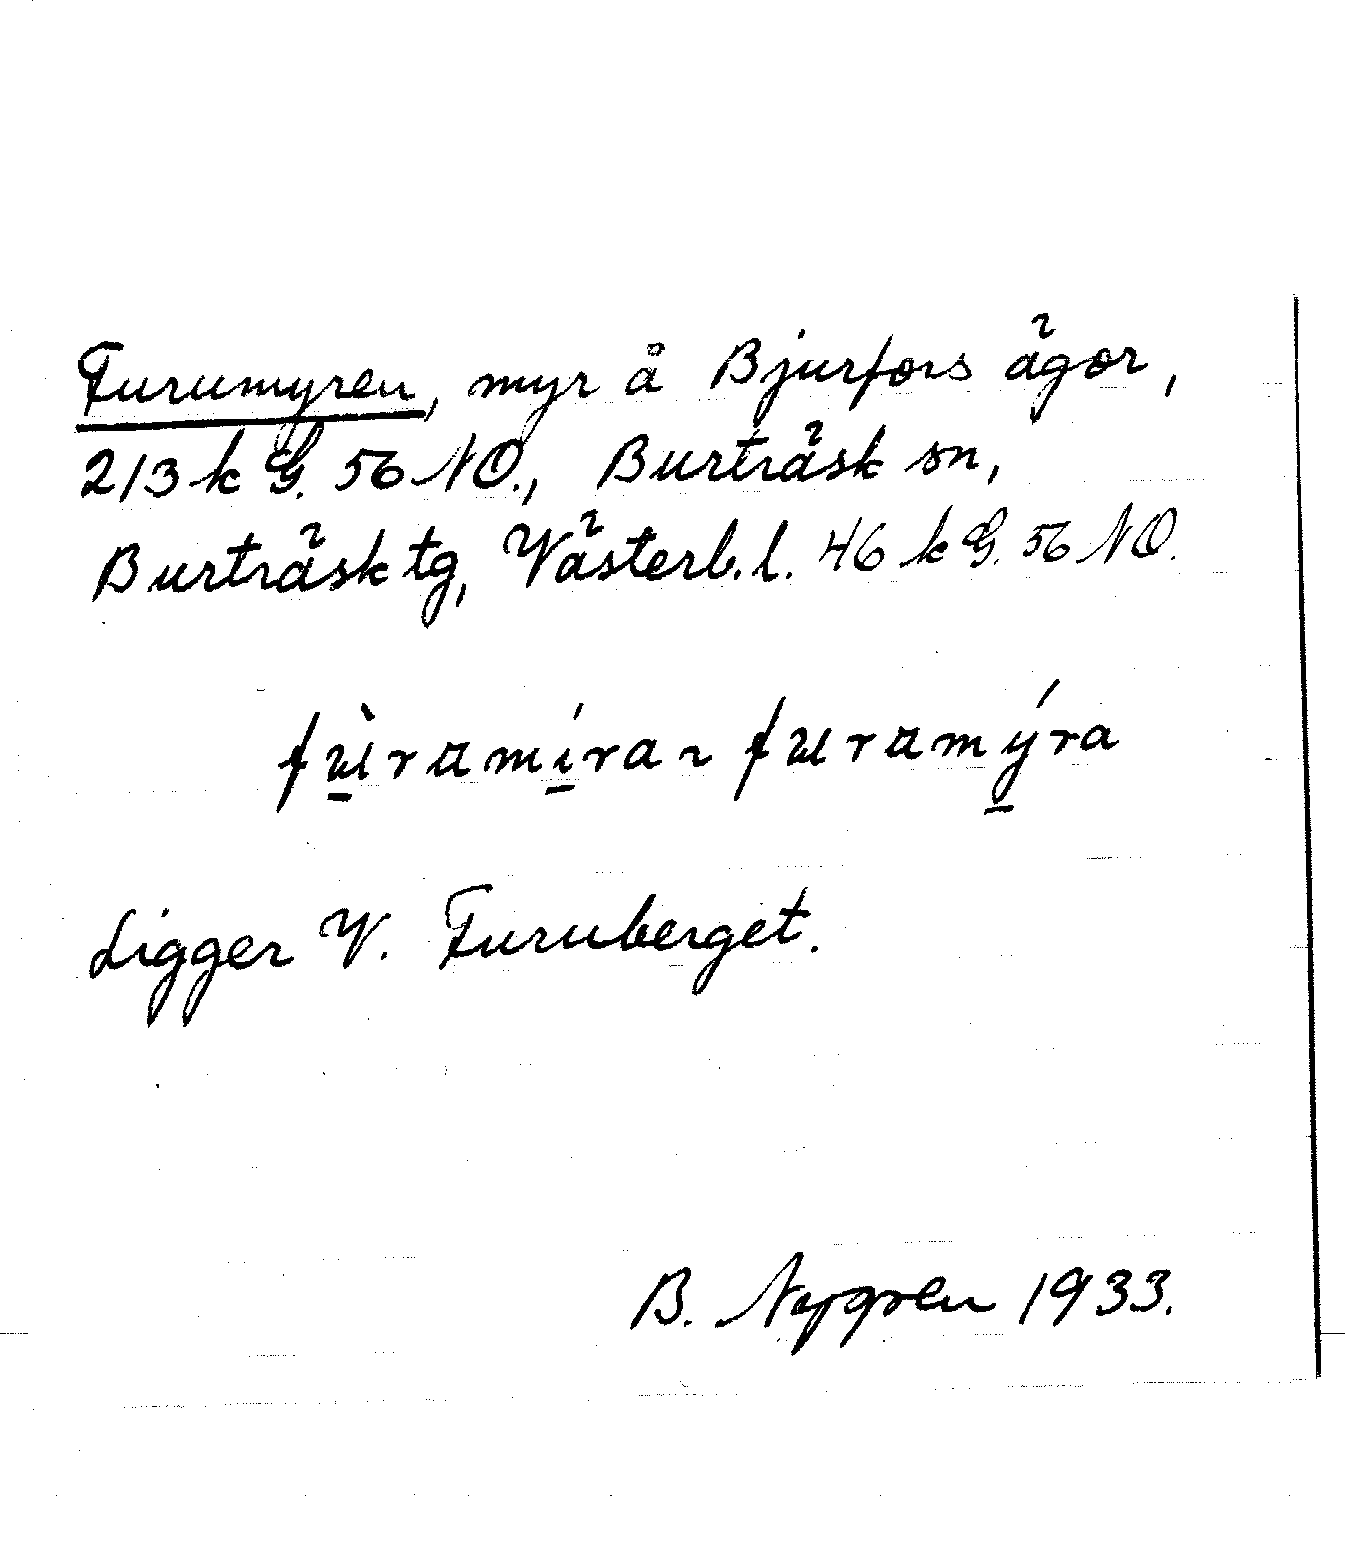 Furumyren, myr å Bjurfors ägor,
2/3 k G. 56 NO., Burträsk sn,
Burträsk tg, Västerb. l. 46 k G. 56 NO.
fùramíra ~ furamýra
Ligger V. Furuberget.
B. Nygren 1933.